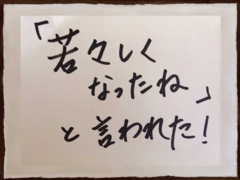 「若々しく
なったね」
と言われた!